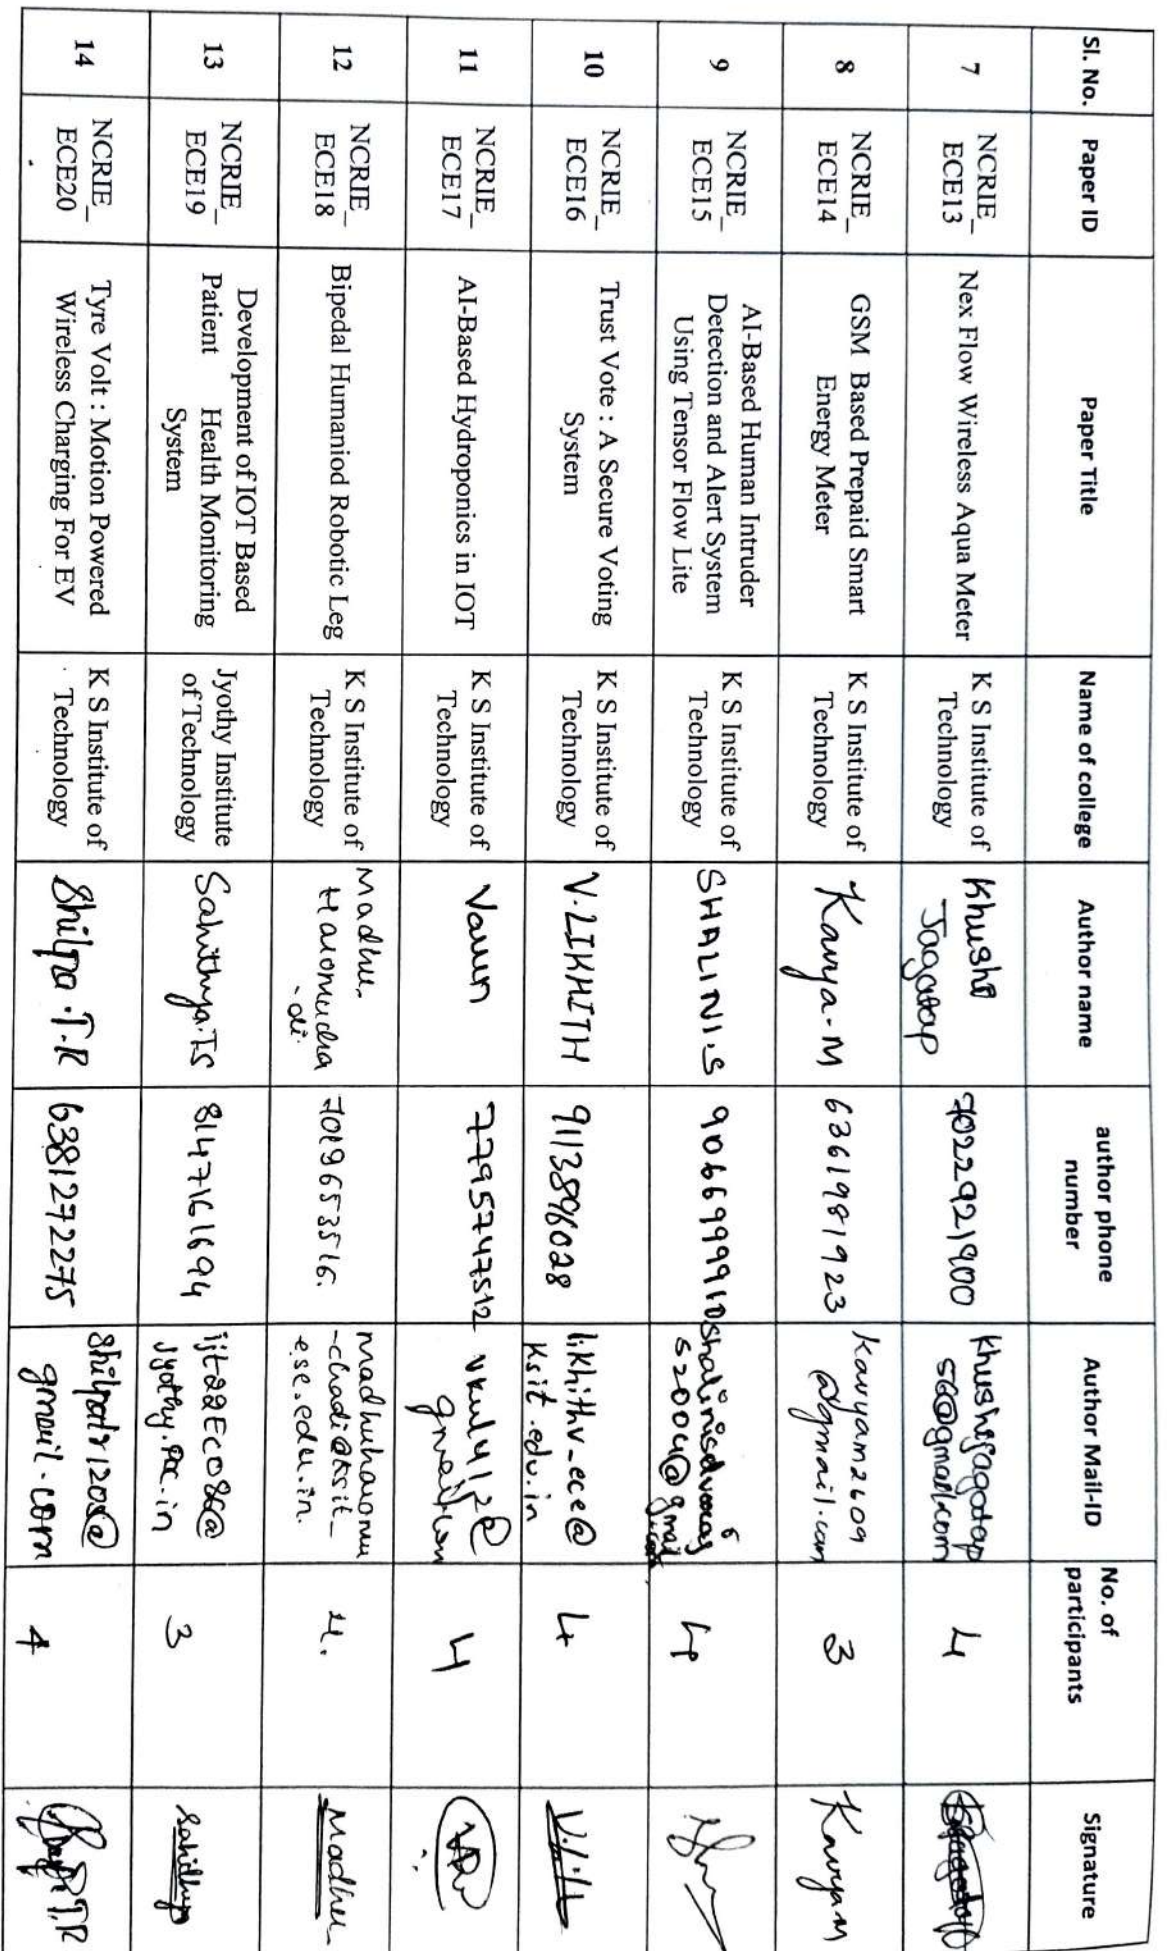 Sl. No. Paper ID Paper Title Name of college Author name author phone number Author Mail-ID No. of participants Signature
7 NCRIE_ ECE13 Nex Flow Wireless Aqua Meter K S Institute of Technology Khushi Jagatap 7022921900 khushijagatap 56@gmail.com 4
8 NCRIE_ ECE14 GSM Based Prepaid Smart Energy Meter K S Institute of Technology Kavya-M 6361981923 kavyam2609 @gmail.com 3 KavyaM
9 NCRIE_ ECE15 AI-Based Human Intruder Detection and Alert System Using Tensor Flow Lite K S Institute of Technology SHALINI.S 9066999910 4
10 NCRIE_ ECE16 Trust Vote : A Secure Voting System K S Institute of Technology V.LIKHITH 9113896028 likhithv_ece@ ksit.edu.in 4
11 NCRIE_ ECE17 AI-Based Hydroponics in IOT K S Institute of Technology Varun 7795747512 4
12 NCRIE_ ECE18 Bipedal Humaniod Robotic Leg K S Institute of Technology Madhu 4. Madhu
13 NCRIE_ ECE19 Development of IOT Based Patient Health Monitoring System Jyothy Institute of Technology Sahithya.TS 8147161694 3 Sahithya
14 NCRIE_ ECE20 Tyre Volt : Motion Powered Wireless Charging For EV K S Institute of Technology Shilpa.T.R 6381272275 shilpatr1205@ gmail.com 4